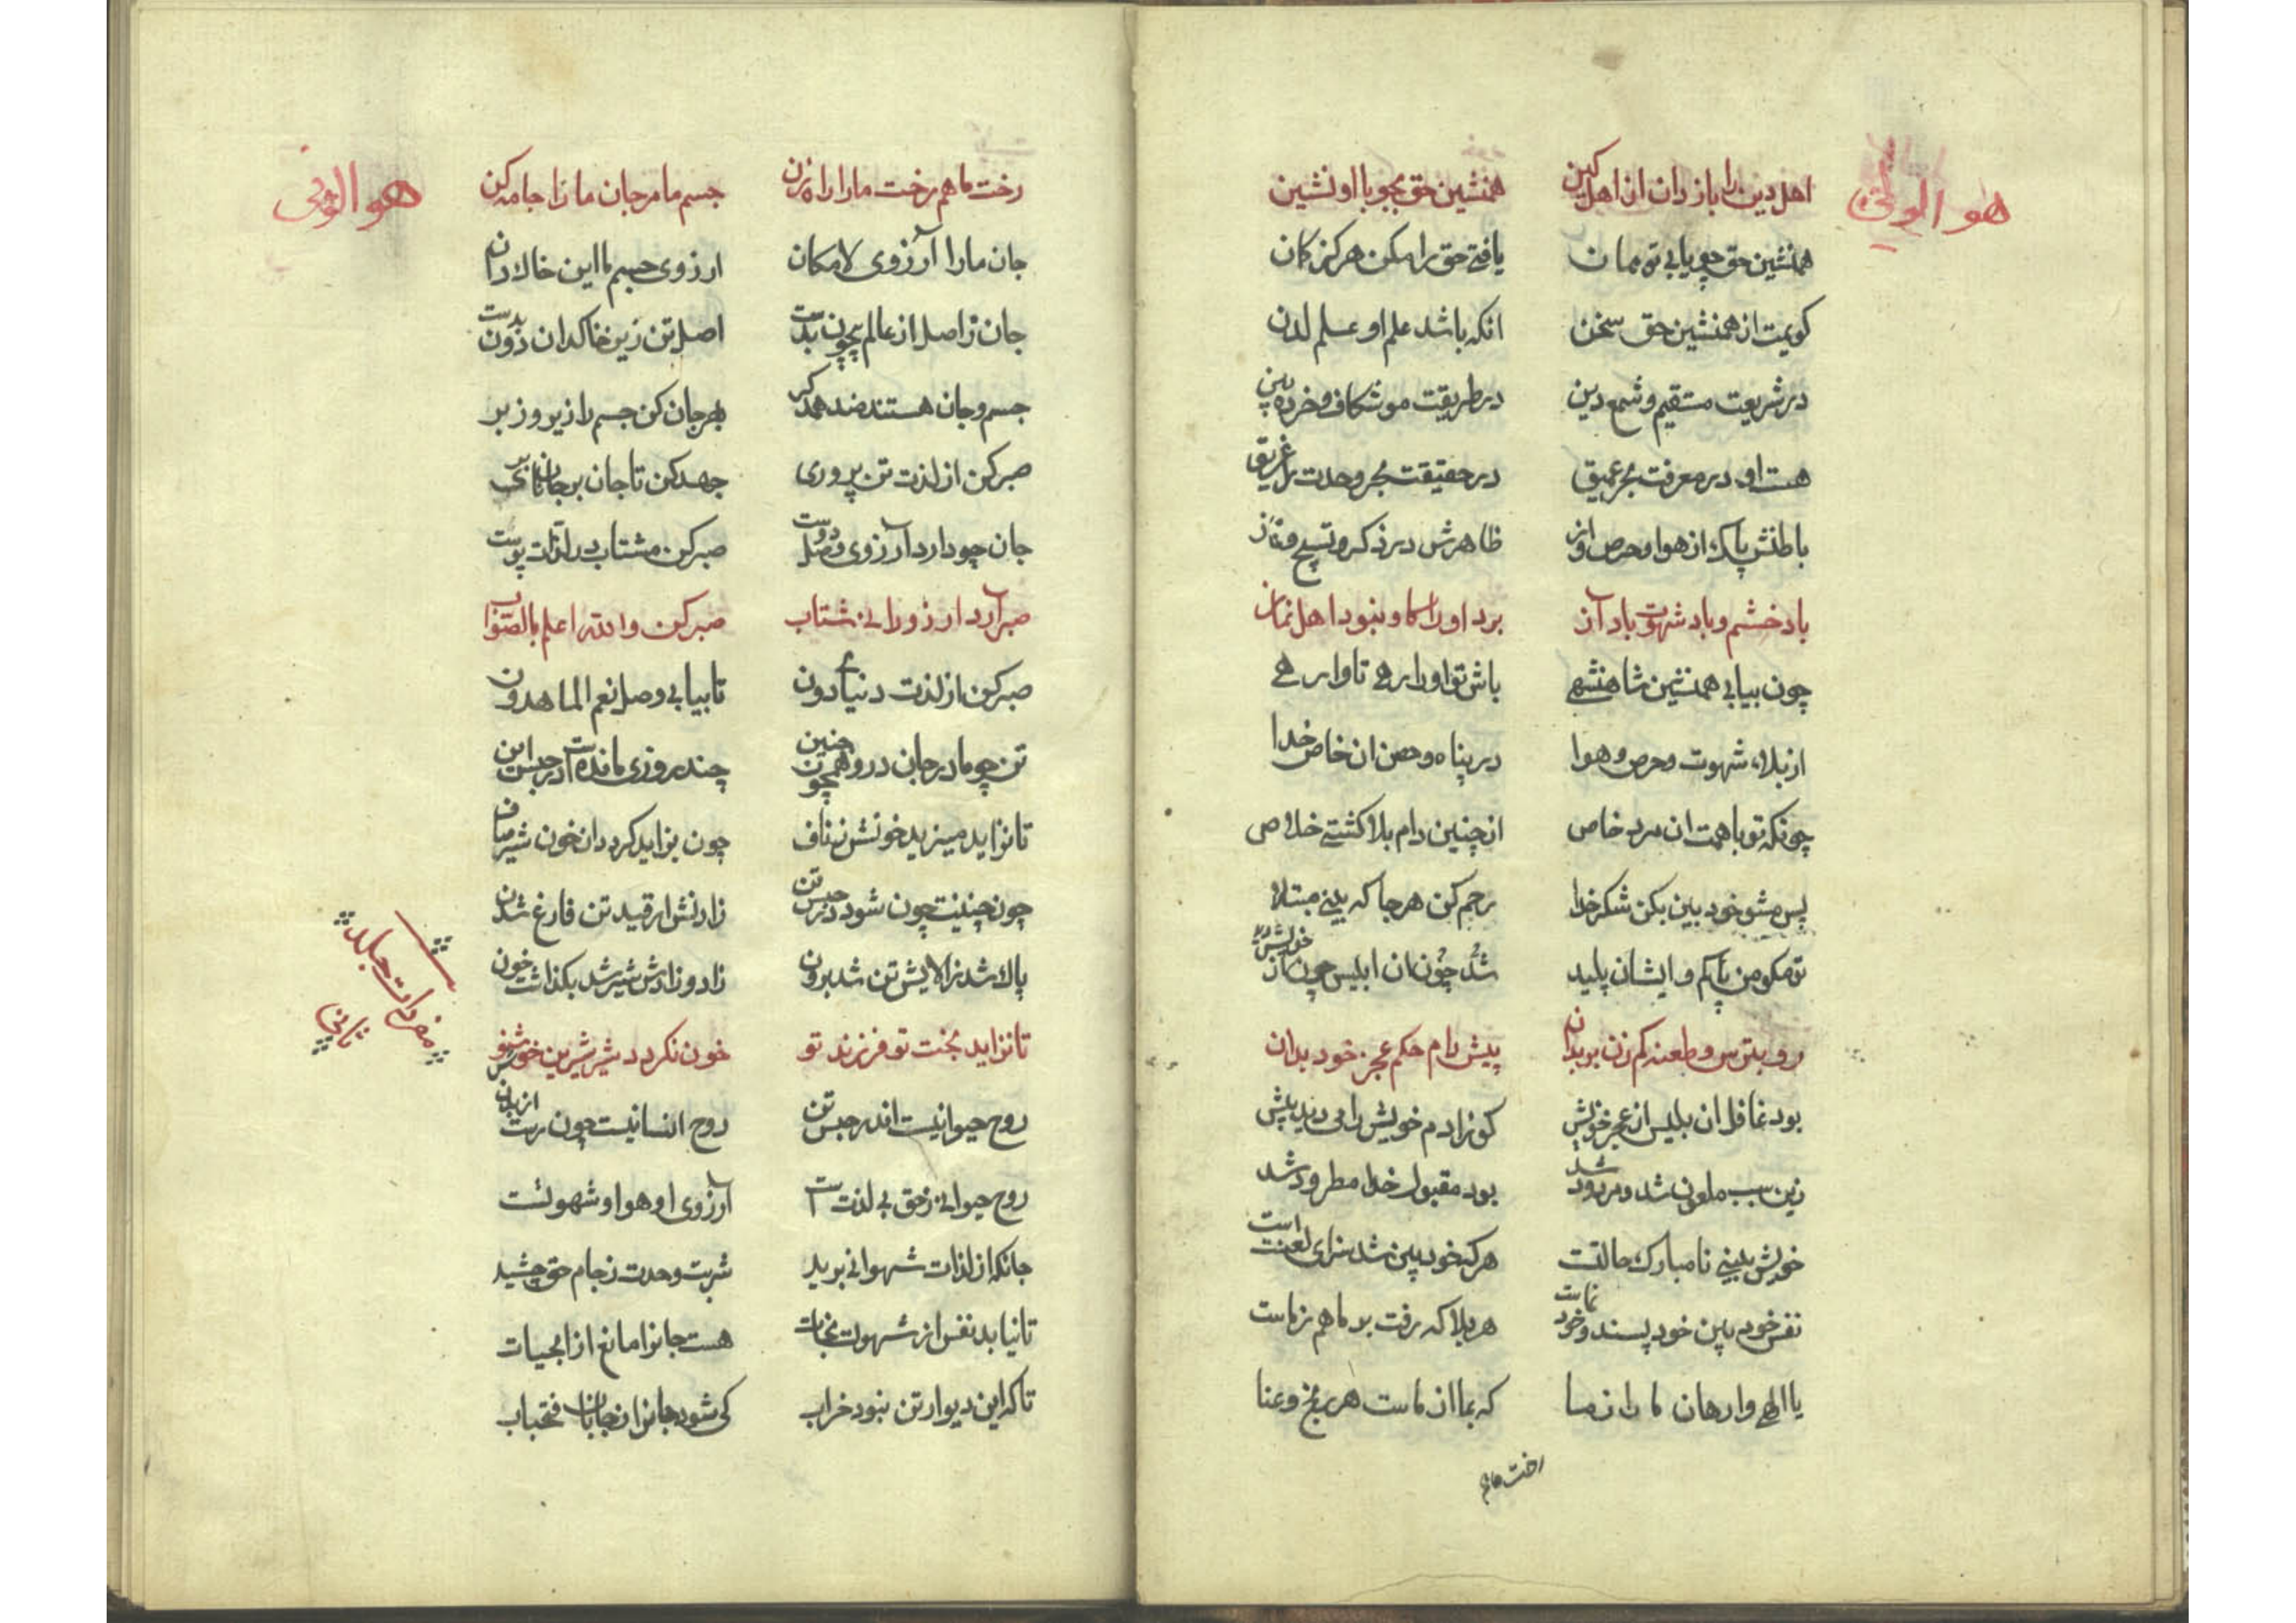 هو الوفی
اهل دین را باز دان از اهل کین همنشین حق بجو با او نشین
همنشین حق چو یابی تو همان یافتی حق را مکن هرکز کمان
کویمت از همنشین حق سخن انکه باشد علم او علم لدن
در شریعت مستقیم و شمع دین در طریقت موشکاف و خرده بین
هست او در معرفت بحر عمیق در حقیقت بحر وحدت را غریق
باطنش پاک از هوا و حرص و از ظاهرش در ذکر و تسبیح و نماز
باد خشم و باد شهوت باد آز برد او را کاو نبود اهل نماز
چون بیابی همنشین شاهنشهی باش تو او را رهی تا وارهی
از بلاء شهوت و حرص و هوا در پناه و حصن ان خاص خدا
چونکه تو با همت ان مرد خاص از چنین دام بلا کشتی خلاص
پس مشو خود بین بکن شکر خدا رحم کن هر جا که بینی مبتلا
تو مکو من پاکم و ایشان پلید شد چون ان ابلیس چون
رو بترس و طعنه کم زن بر بدان پیش دام حکم عجز خود بدان
بود غافل ان بلیس از عجز خویش کو ز ادم خویش را می دید پیش
زین سبب ملعون شد و مردود شد بود مقبول خدا مطرود شد
خویش بینی نا مبارک حالتست هر که خود بین شد سزای لعنت است
نفس خود بین خود پسند و خود نماست هر بلا که رفت بر ما هم ز ماست
یا الهی وارهان ما را ز ما که بما از ماست هر رنج و عنا
رخت ما هم
هو الوفی
رخت ما هم رخت ما را راه زن جسم ما مر جان ما را جامه کن
جان ما را آرزوی لامکان ارزوی جسم ما این خاکدان
جان ز اصل از عالم بیچون بدست اصل تن زین خاکدان دون بدست
جسم و جان هستند ضد همدکر بهر جان کن جسم را زیر و زبر
صبر کن از لذت تن پروری جهد کن تا جان بر جانان بری
جان چو دارد آرزوی وصل دوست صبر کن مشتاب در لذات پوست
صبر آرد ارزو را نی شتاب صبر کن والله اعلم بالصواب
صبر کن از لذت دنیای دون تا بیابی وصل نعم الماهدون
تن چو مادر جان درو همچون جنین چند روزی مانده است در حبس این
تا نزاید میزید خونش ز ناف چون بزاید کردد ان خون شیر صاف
چون جنینت چون شود در حبس تن زادنش از قید تن فارغ شدن
پاک شد ز الایش تن شد برون زاد و زادش شیر شد بکذاشت خون
تا نزاید بخت تو فرزند تو خون نکردد شیر شیرین خوش شنو
روح حیوانیست اندر حبس تن روح انسانیست چون رست از بدن
روح حیوانی ز حق بی لذتست آرزوی او هوا و شهوتست
جانکه از لذات شهوانی برید شربت وحدت ز جام حق چشید
تا نیابد نفس از شهوت نجات هست جانرا مانع از اب حیات
تا که این دیوار تن نبود خراب کی شود جانرا ز جانان فتح باب